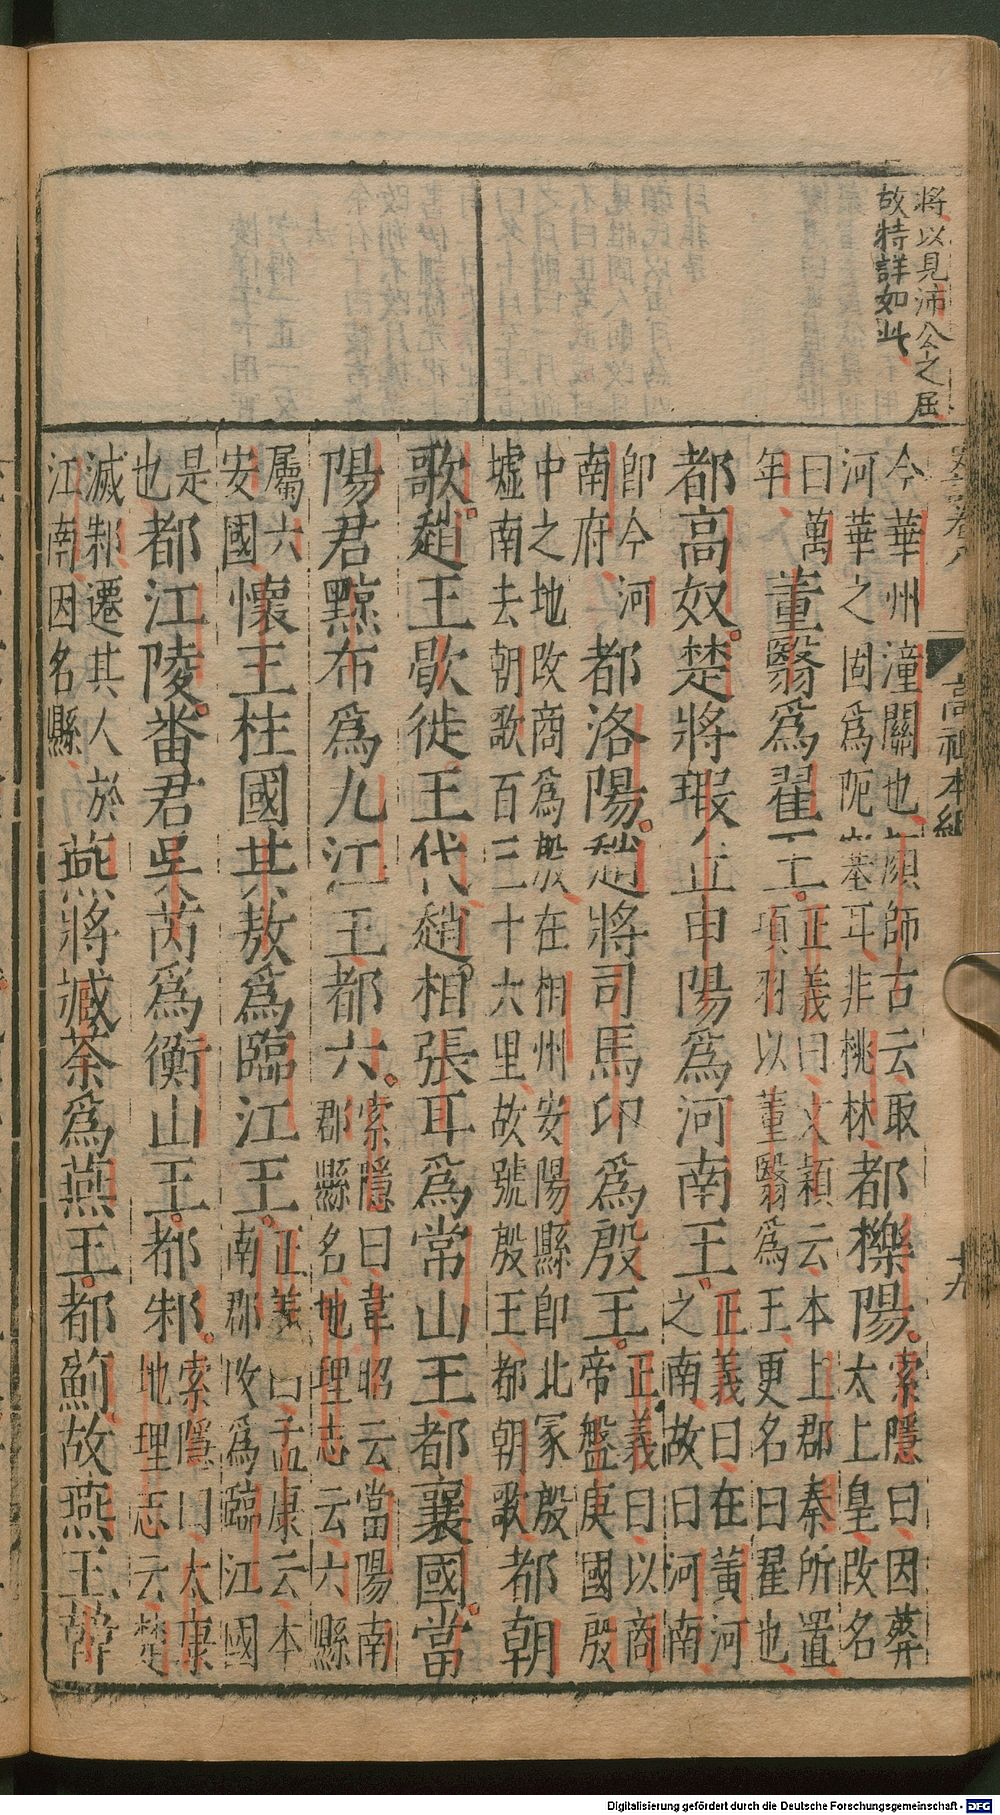 將以見沛公之屈
故特詳如此
高祖本紀
十九
今華州潼關也顏師古云取河華之固爲阨塞耳非桃林都櫟陽索隱曰因葬太上皇改名
曰萬年董翳爲翟王正義曰文穎云本上郡秦所置項羽以董翳爲王更名曰翟也
都高奴楚將瑕丘申陽爲河南王正義曰在黃河之南故曰河南
卽今河南府都洛陽趙將司馬卬爲殷王正義曰以商帝盤庚國殷
中之地改商爲殷在相州安陽縣卽北冢殷墟南去朝歌百三十六里故號殷王都朝歌都朝
歌趙王歇徙王代趙相張耳爲常山王都襄國當
陽君黥布爲九江王都六索隱曰韋昭云當陽南郡縣名地理志云六縣
屬六安國懷王柱國共敖爲臨江王正義曰孟康云本南郡改爲臨江國
是也都江陵番君吳芮爲衡山王都邾索隱曰太康地理志云楚
滅邾遷其人於江南因名縣燕將臧荼爲燕王都薊故燕王韓
Digitalisierung gefördert durch die Deutsche Forschungsgemeinschaft - DFG